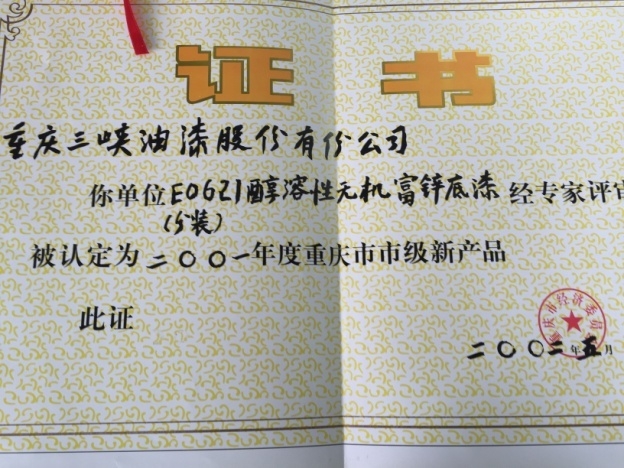 证书
重庆三峡油漆股份有份公司
你单位E0621醇溶性无机富锌底漆经专家评审
(分装)
被认定为二〇〇一年度重庆市市级新产品
此证
重庆市经济委员
二〇〇二年五月